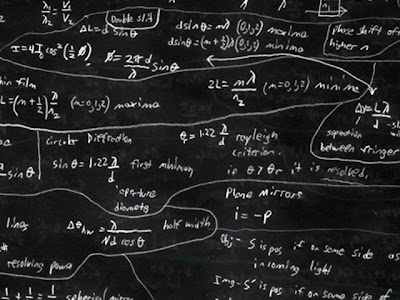 λ₁/λ₂ = V₁/V₂
ΔL = d sin θ
Double slit
d sin θ = mλ (0,1,2) maxima
d sin θ = (m+½)λ (0,1,2) minima
n₁
Phase shift of
higher n
I = 4I₀ cos²(½ϕ)
ϕ = 2π d/λ sin θ
thin film
2L = mλ/n₂ (m=0,1,2) minima
L = (m+½) λ/n₂ (m=0,1,2) maxima
Δy = Lλ/d
separation
between fringes
circular Diffraction
sin θ = 1.22 λ/d first minimum
aperture
diameter
θ = 1.22 λ/d rayleigh
criterion.
if θ > θ it is resolved.
Plane Mirrors
i = -P
lines
Δθhw = λ/(Nd cos θ) half width
resolving power
Obj - S is pos if on same side as
incoming light
Img - S' is pos if on same side
spherical mirror